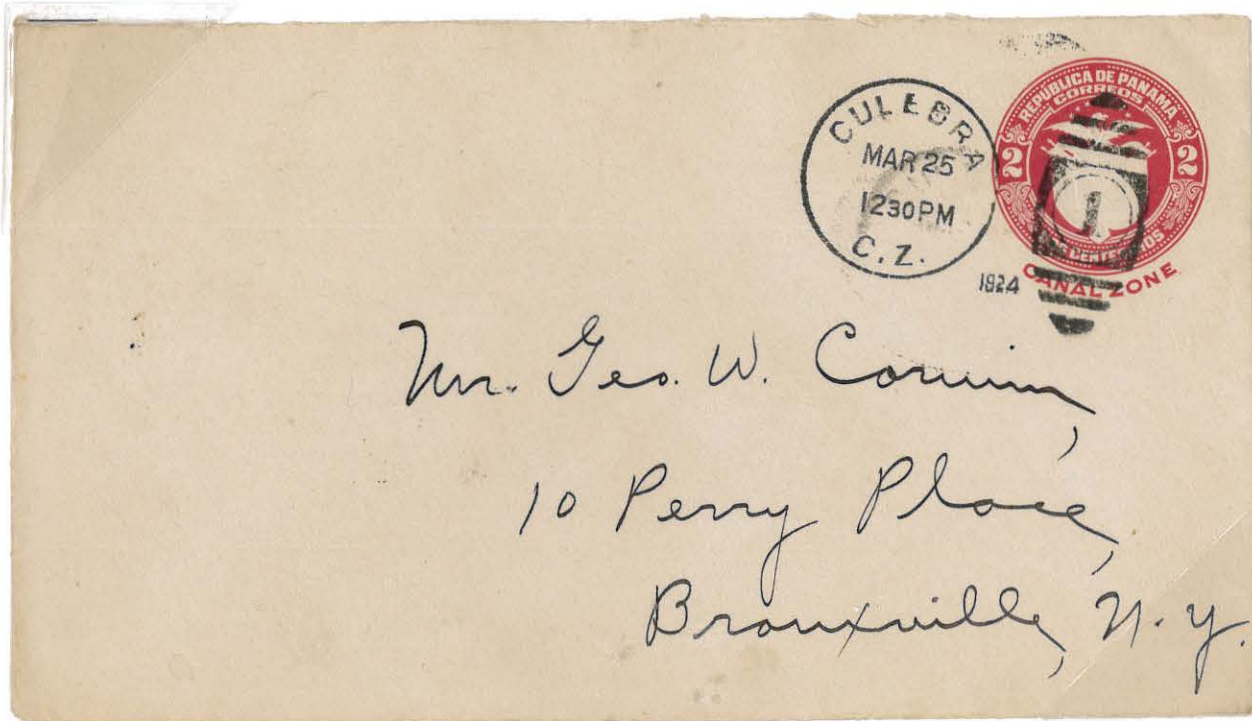 CULEBRA
MAR 25
1230PM
C.Z.
1924
REPUBLICA DE PANAMA
CORREOS
2 2
1
CANAL ZONE
Mr. Geo. W. Corwin,
10 Perry Place,
Bronxville, N.Y.